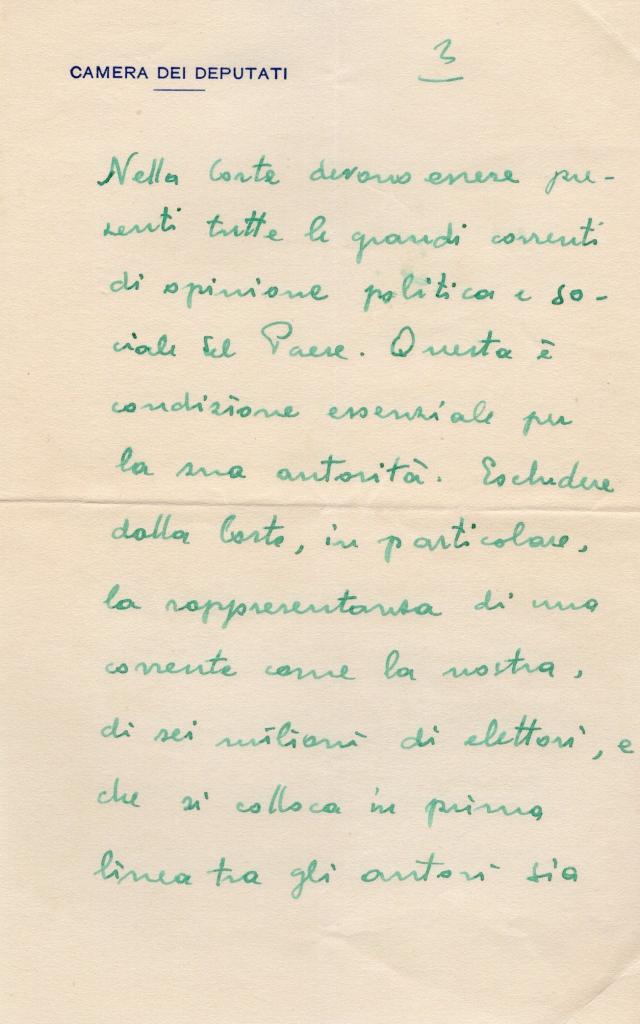 CAMERA DEI DEPUTATI
3
Nella Corte devono essere pre-
senti tutte le grandi correnti
di opinione politica e so-
ciale del Paese. Questa è
condizione essenziale per
la sua autorità. Escludere
dalla Corte, in particolare,
la rappresentanza di una
corrente come la nostra,
di sei milioni di elettori, e
che si colloca in prima
linea tra gli autori sia